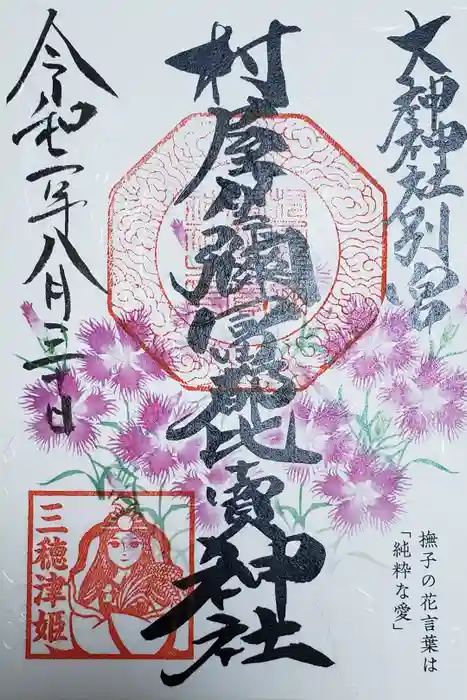 大神神社別宮
村屋坐彌冨都比賣神社
令和二年八月三十日
三穂津姫
撫子の花言葉は
「純粋な愛」